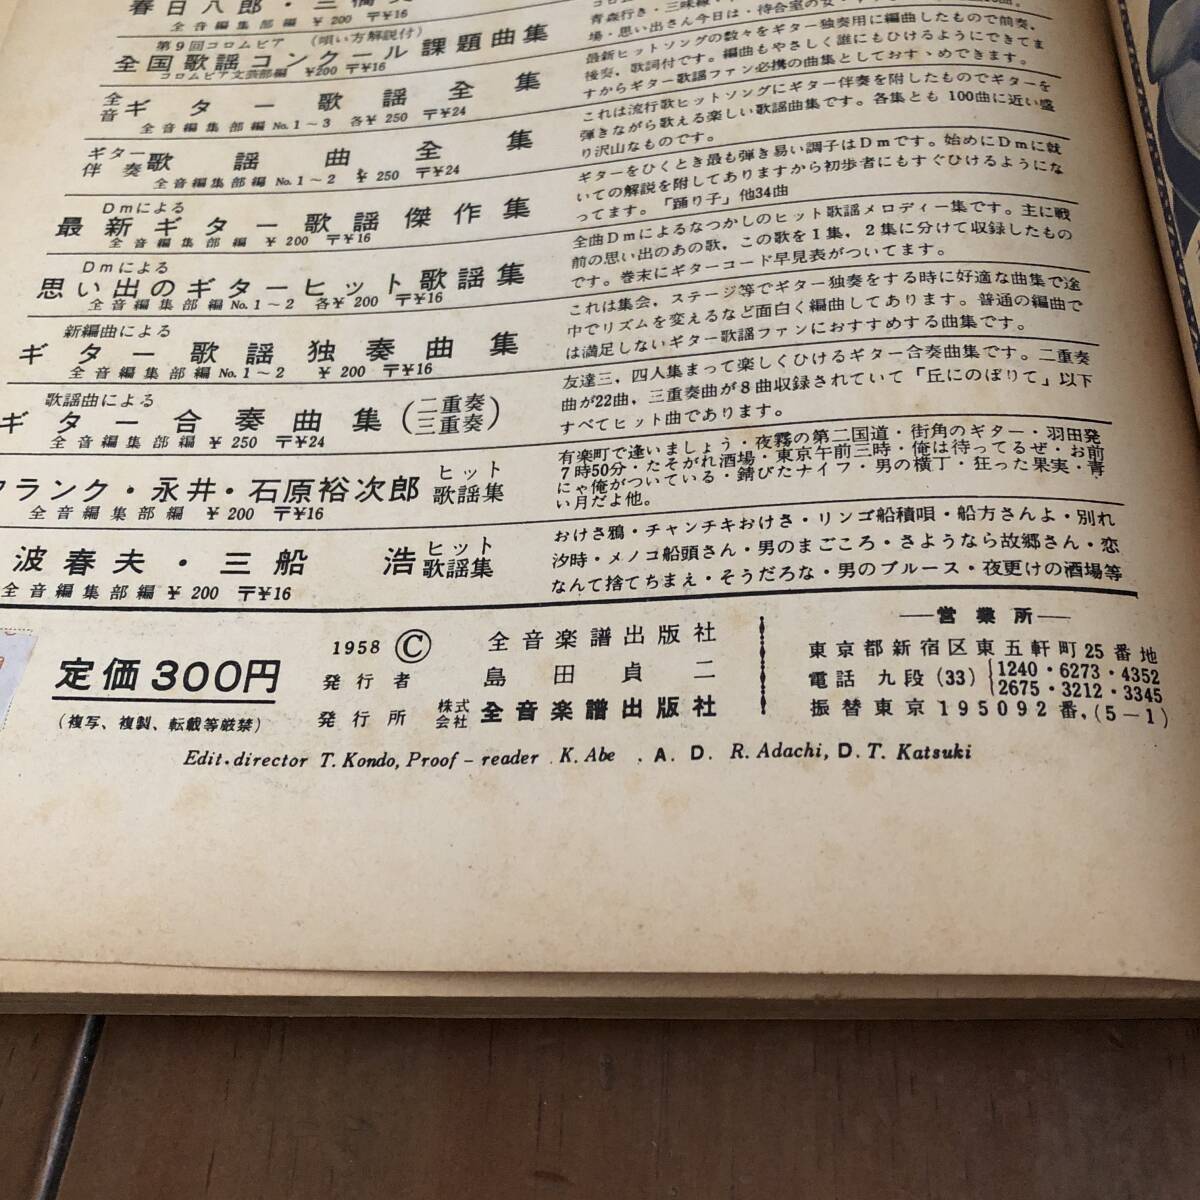 春日八郎・三橋美
全音編集部編 ¥200 〒¥16
青森行き・三味線
場・思い出さん今日は・待合室の女
第9回コロムビア (唄い方解説付)
全国歌謡コンクール課題曲集
コロムビア文芸部編 ¥200 〒¥16
最新ヒットソングの数々をギター独奏用に編曲したもので前奏,
後奏,歌詞付です。編曲もやさしく誰にもひけるようにできてま
すからギター歌謡ファン必携の曲集としておすゝめできます。
全音 ギター歌謡全集
全音編集部編 No.1~3 各¥250 〒¥24
これは流行歌ヒットソングにギター伴奏を附したものでギターを
弾きながら歌える楽しい歌謡曲集です。各集とも100曲に近い盛
り沢山なものです。
ギター伴奏 歌謡曲全集
全音編集部編 No.1~2 ¥250 〒¥24
ギターをひくとき最も弾き易い調子はDmです。始めにDmに就
いての解説を附してありますから初歩者にもすぐひけるようにな
ってます。「踊り子」他34曲
Dmによる
最新ギター歌謡傑作集
全音編集部編 ¥200 〒¥16
全曲Dmによるなつかしのヒット歌謡メロディー集です。主に戦
前の思い出のあの歌,この歌を1集,2集に分けて収録したもの
です。巻末にギターコード早見表がついてます。
Dmによる
思い出のギターヒット歌謡集
全音編集部編 No.1~2 各¥200 〒¥16
これは集会,ステージ等でギター独奏をする時に好適な曲集で途
中でリズムを変えるなど面白く編曲してあります。普通の編曲で
は満足しないギター歌謡ファンにおすすめする曲集です。
新編曲による
ギター歌謡独奏曲集
全音編集部編 No.1~2 ¥200 〒¥16
友達三,四人集まって楽しくひけるギター合奏曲集です。二重奏
曲が22曲,三重奏曲が8曲収録されていて「丘にのぼりて」以下
すべてヒット曲であります。
歌謡曲による
ギター合奏曲集(二重奏 三重奏)
全音編集部編 ¥250 〒¥24
有楽町で逢いましょう・夜霧の第二国道・街角のギター・羽田発
7時50分・たそがれ酒場・東京午前三時・俺は待ってるぜ・お前
にゃ俺がついている・錆びたナイフ・男の横丁・狂った果実・青
い月だよ他。
フランク・永井・石原裕次郎 ヒット歌謡集
全音編集部編 ¥200 〒¥16
おけさ鴉・チャンチキおけさ・リンゴ船積唄・船方さんよ・別れ
汐時・メノコ船頭さん・男のまごころ・さようなら故郷さん・恋
なんて捨てちまえ・そうだろな・男のブルース・夜更けの酒場等
波春夫・三船 浩 ヒット歌謡集
全音編集部編 ¥200 〒¥16
定価300円
(複写、複製、転載等厳禁)
1958 © 全音楽譜出版社
発行者 島田貞二
発行所 株式会社 全音楽譜出版社
—営業所—
東京都新宿区東五軒町25番地
電話 九段(33){1240・6273・4352
2675・3212・3345
振替東京195092番,(5-1)
Edit.director T. Kondo, Proof-reader K. Abe , A. D. R. Adachi, D. T. Katsuki